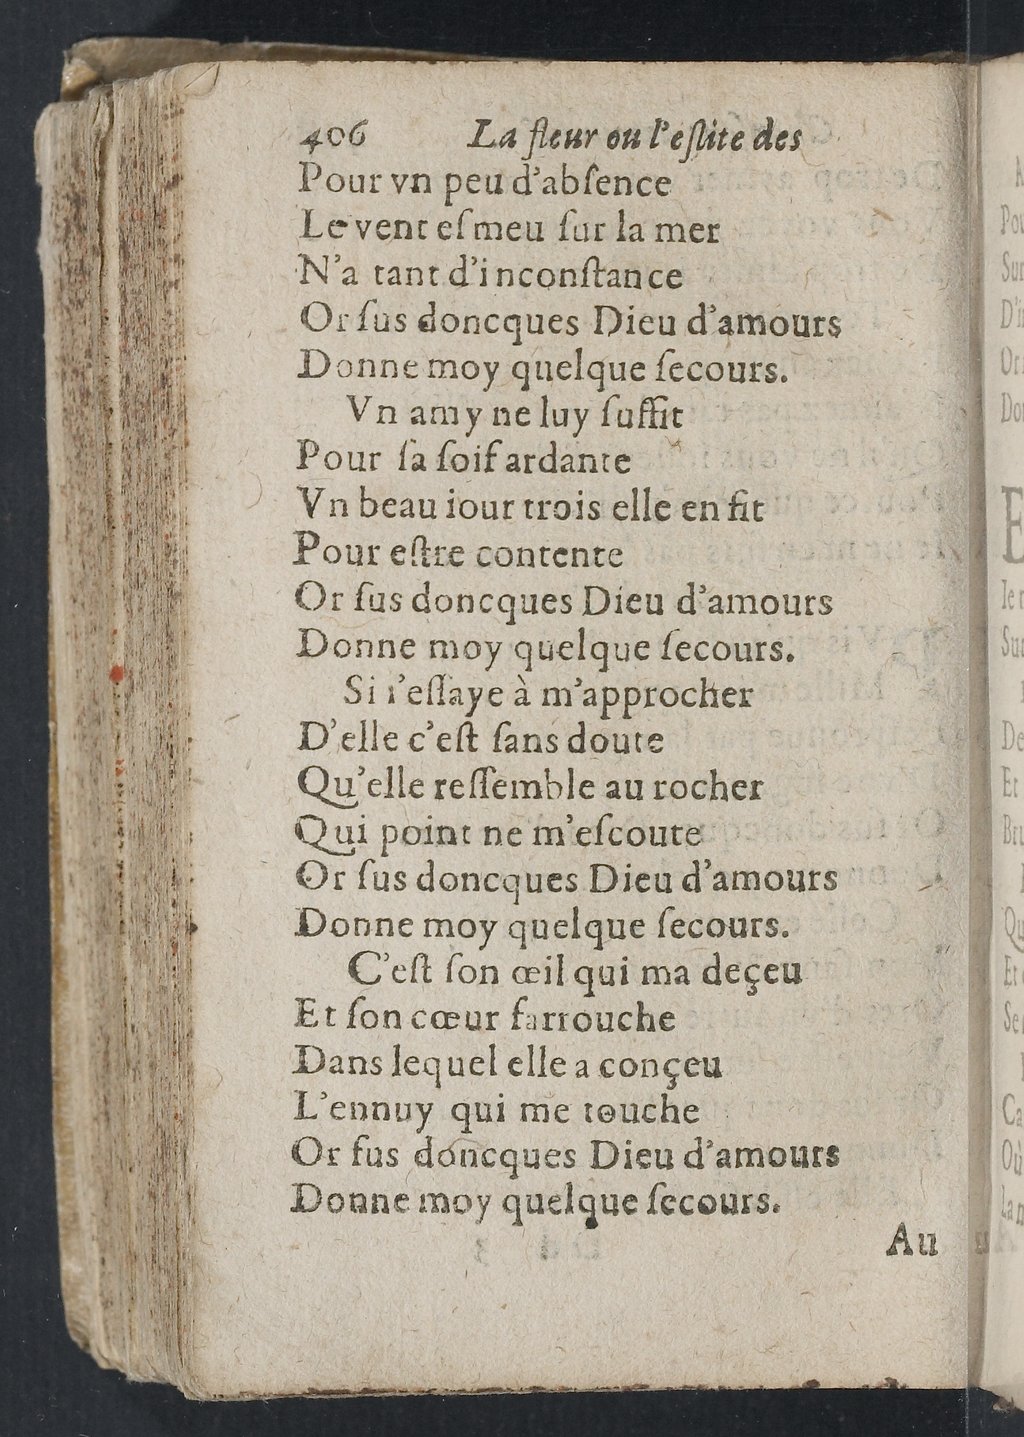 406 La fleur ou l'eſlite des
Pour vn peu d'abſence
Le vent eſmeu ſur la mer
N'a tant d'inconſtance
Or ſus doncques Dieu d'amours
Donne moy quelque ſecours.
Vn amy ne luy ſuffit
Pour ſa ſoif ardante
Vn beau iour trois elle en fit
Pour eſtre contente
Or ſus doncques Dieu d'amours
Donne moy quelque ſecours.
Si i'eſſaye à m'approcher
D'elle c'eſt ſans doute
Qu'elle reſſemble au rocher
Qui point ne m'eſcoute
Or ſus doncques Dieu d'amours
Donne moy quelque ſecours.
C'eſt ſon œil qui ma deçeu
Et ſon cœur farrouche
Dans lequel elle a conçeu
L'ennuy qui me touche
Or ſus doncques Dieu d'amours
Donne moy quelque ſecours.
Au